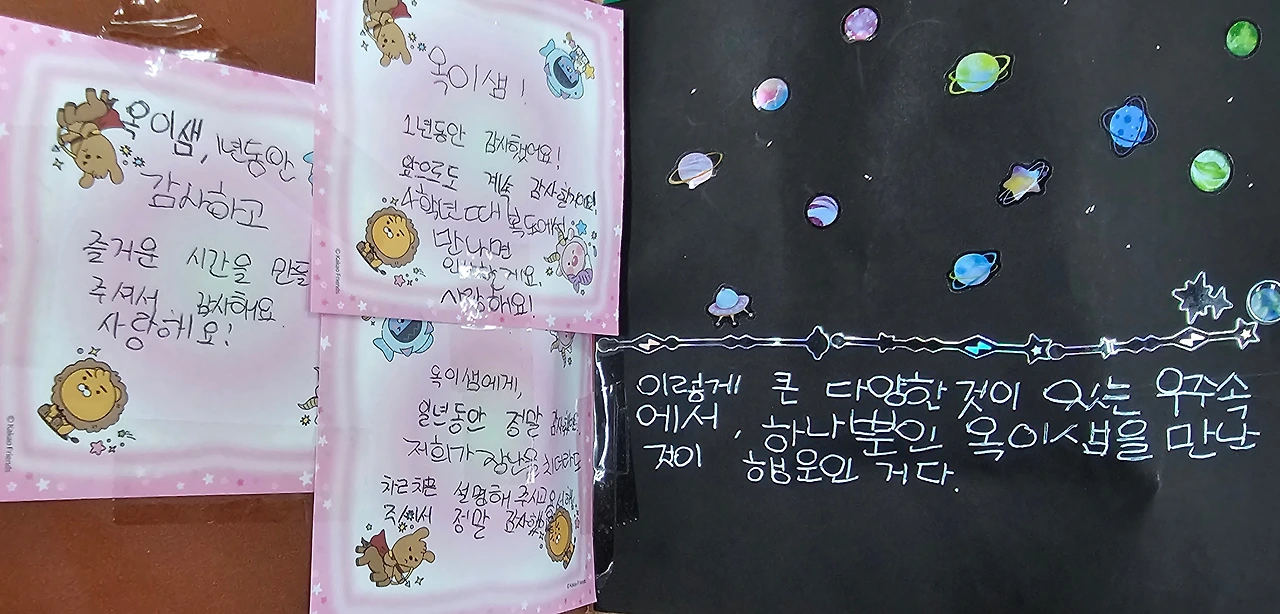 옥이샘, 1년동안
감사하고
즐거운 시간을 만들
주셔서 감사해요.
사랑해요!
© Kakao Friends
옥이샘!
1년동안 감사했어요!
앞으로도 계속
4학년 때 복도에서
만나면
인사할게요.
사랑해요!
© Kakao Friends
옥이샘에게,
일년동안 정말
저희가 장난을
차르차큰 설명해 주시고
주셔서 정말
© Kakao Friends
이렇게 큰 다양한 것이 있는 우주속
에서, 하나뿐인 옥이샘을 만난
것이 행운인 거다.